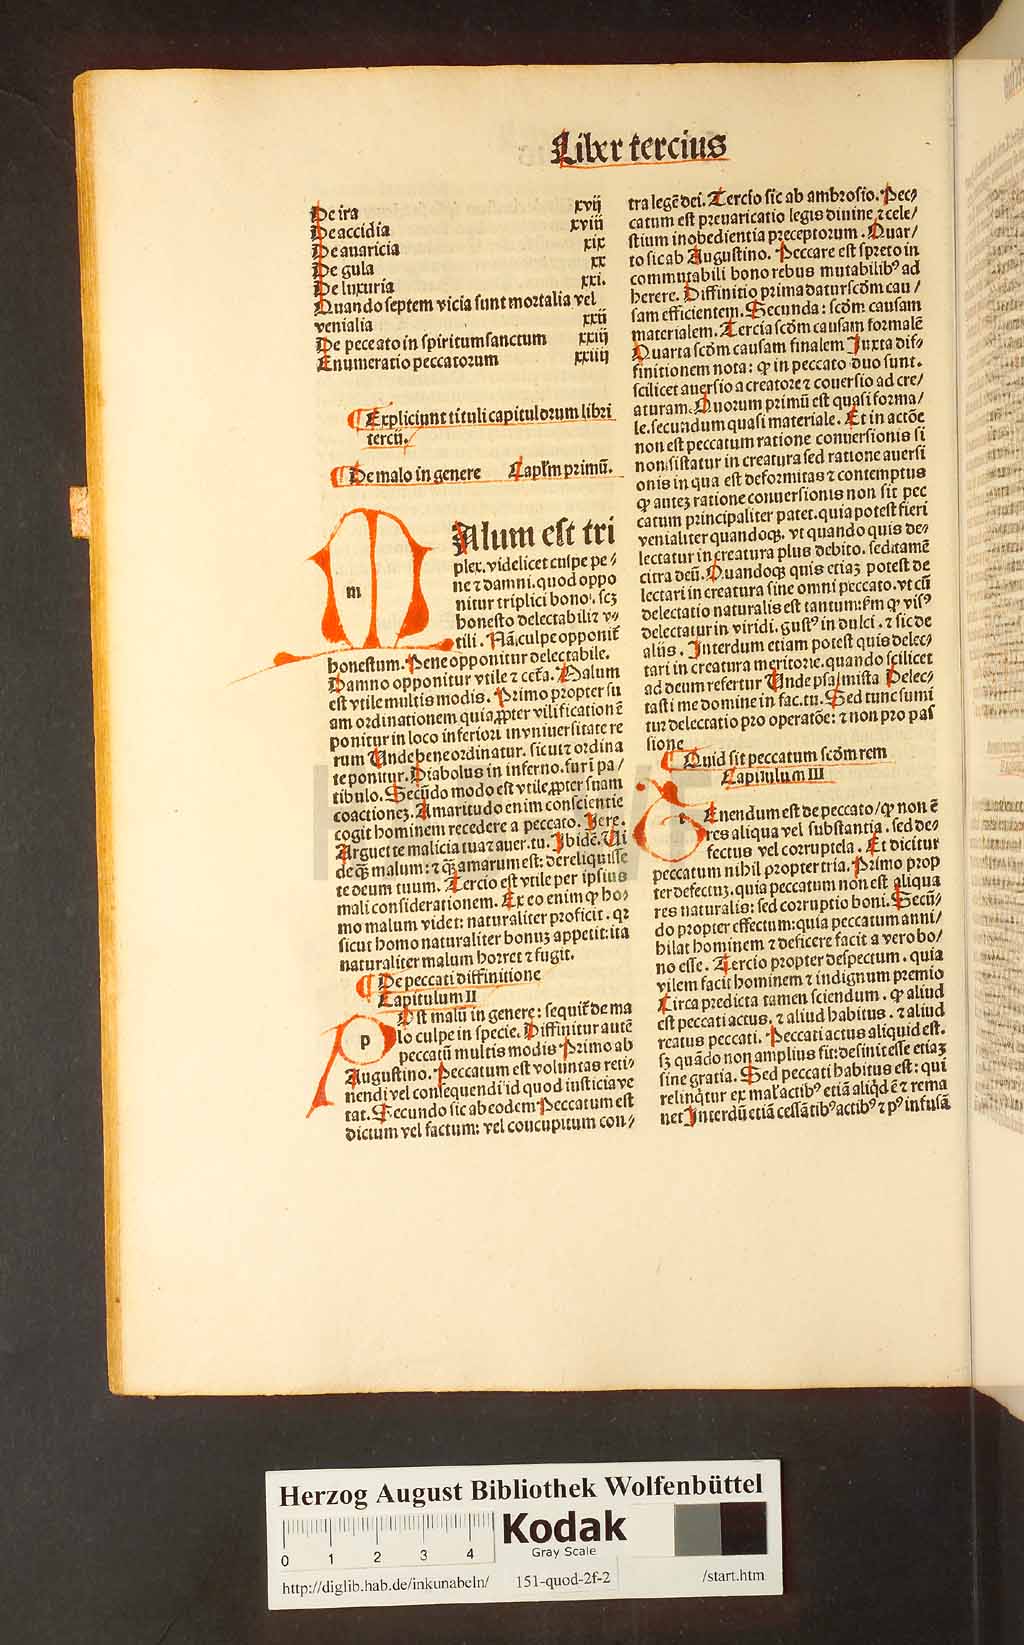 Liber tercius
De ira xvij
De accidia xviij
De auaricia xix
De gula xx
De luxuria xxi.
Quando septem vicia sunt mortalia vel
venialia xxij
De peccato in spiritumsanctum xxiij
Enumeratio peccatorum xxiiij
¶ Expliciunt tituli capitulorum libri
tercij.
¶ De malo in genere Capl'm primū.
m
MAlum est tri
plex. videlicet culpe pe⸗
ne ⁊ damni. quod oppo
nitur triplici bono. scꝫ
honesto delectabili ⁊ v⸗
tili. Nā culpe opponit᷑
honestum. Pene opponitur delectabile.
Damno opponitur vtile ⁊ cet᷑a. Malum
est vtile multis modis. Primo propter su
am ordinationem quia ꝓpter vilificationē
ponitur in loco inferiori in vniuersitate re
rum Unde bene ordinatur. sicut ⁊ ordina
te ponitur. Diabolus in inferno. fur ī pa/
tibulo. Secūdo modo est vtile ꝓpter suam
coactioneꝫ. Amaritudo enim conscientie
cogit hominem recedere a peccato. Jere.
Arguet te malicia tua ⁊ auer. tu. Ibidē. Ui
de ꝙ̃ malum: ⁊ ꝙ̃ amarum est: dereliquisse
te deum tuum. Tercio est vtile per ipsius
mali considerationem. Ex eo enim ꝙ ho⸗
mo malum videt: naturaliter proficit. qꝛ
sicut homo naturaliter bonuꝫ appetit: ita
naturaliter malum horret ⁊ fugit.
¶ De peccati diffinitione
Capitulum II
p
POst malū in genere: sequit᷑ de ma
lo culpe in specie. Diffinitur autē
peccatū multis modis Primo ab
Augustino. Peccatum est voluntas reti⸗
nendi vel consequendi id quod iusticia ve
tat. Secundo sic ab eodem Peccatum est
dictum vel factum: vel coucupitum con⸗
tra legē dei. Tercio sic ab ambrosio. Pec⸗
catum est preuaricatio legis diuine ⁊ cele/
stium inobedientia preceptorum. Quar/
to sic ab Augustino. Peccare est spreto in
commutabili bono rebus mutabilibꝰ ad
herere. Diffinitio prima datur scḋm cau/
sam efficientem. Secunda: scḋm causam
materialem. Tercia scḋm causam formalē
Quarta scḋm causam finalem Juxta dif⸗
finitionem nota: ꝙ in peccato duo sunt.
scilicet auersio a creatore ⁊ cōuersio ad cre/
aturam. Quorum primū est quasi forma/
le. secundum quasi materiale. Et in actōe
non est peccatum ratione conuersionis si
non sistatur in creatura sed ratione auersi
onis in qua est deformitas ⁊ contemptus
ꝙ auteꝫ ratione conuersionis non sit pec
catum principaliter patet. quia potest fieri
venialiter quandoqꝫ. vt quando quis de⸗
lectatur in creatura plus debito. sed tamē
citra deū. Quandoqꝫ quis etiaꝫ potest de
lectari in creatura sine omni peccato. vt cū
delectatio naturalis est tantum: ẜm ꝙ visꝰ
delectatur in viridi. gustꝰ in dulci. ⁊ sic de
aliis. Interdum etiam potest quis delec⸗
tari in creatura meritorie. quando scilicet
ad deum refertur Unde psalmista Delec⸗
tasti me domine in fac. tu. Sed tunc sumi
tur delectatio pro operatōe: ⁊ non pro pas
sione
¶ Quid sit peccatum scḋm rem
Capitulum III
t
TEnendum est de peccato/ ꝙ non ē
res aliqua vel substantia. sed de⸗
fectus vel corruptela. Et dicitur
peccatum nihil propter tria. Primo prop
ter defectuꝫ. quia peccatum non est aliqua
res naturalis: sed corruptio boni. Secū⸗
do propter effectum: quia peccatum anni/
hilat hominem ⁊ deficere facit a vero bo/
no esse. Tercio propter despectum. quia
vilem facit hominem ⁊ indignum premio
Circa predicta tamen sciendum. ꝙ aliud
est peccati actus. ⁊ aliud habitus. ⁊ aliud
reatus peccati. Peccati actus aliquid est.
sꝫ quādo non amplius fit: desinit esse etiaꝫ
sine gratia. Sed peccati habitus est: qui
relinq̇tur ex mal' actibꝰ etiā aliq̇d ē ⁊ rema
net Interdū etiā cessātibꝰ actibꝰ ⁊ pꝰ infusā
Herzog August Bibliothek Wolfenbüttel
0 1 2 3 4
Kodak
Gray Scale
http://diglib.hab.de/inkunabeln/ 151-quod-2f-2 /start.htm